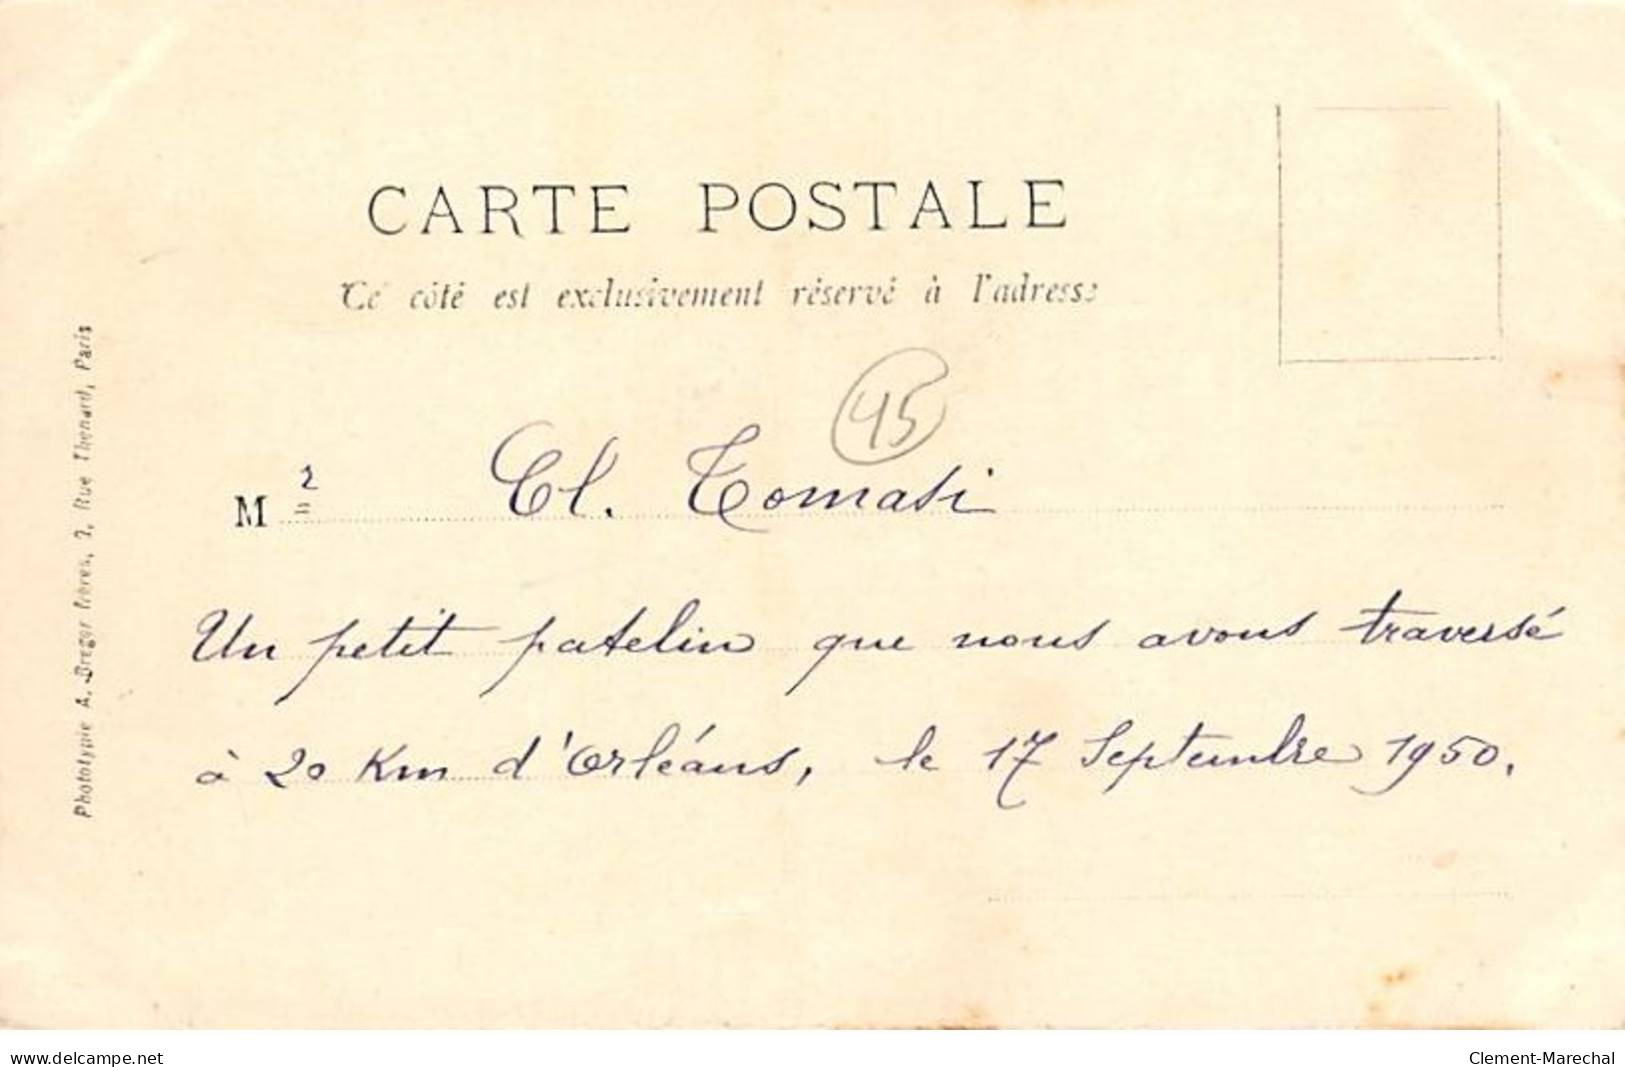 CARTE POSTALE
Ce côté est exclusivement réservé à l'adresse
45
M r Cl. Tomasi
Un petit patelin que nous avons traversé
à 20 Km d'Orléans, le 17 Septembre 1950.
Phototypie A. Breger Frères, 9, Rue Thenard, Paris
www.delcampe.net
Clement-Marechal